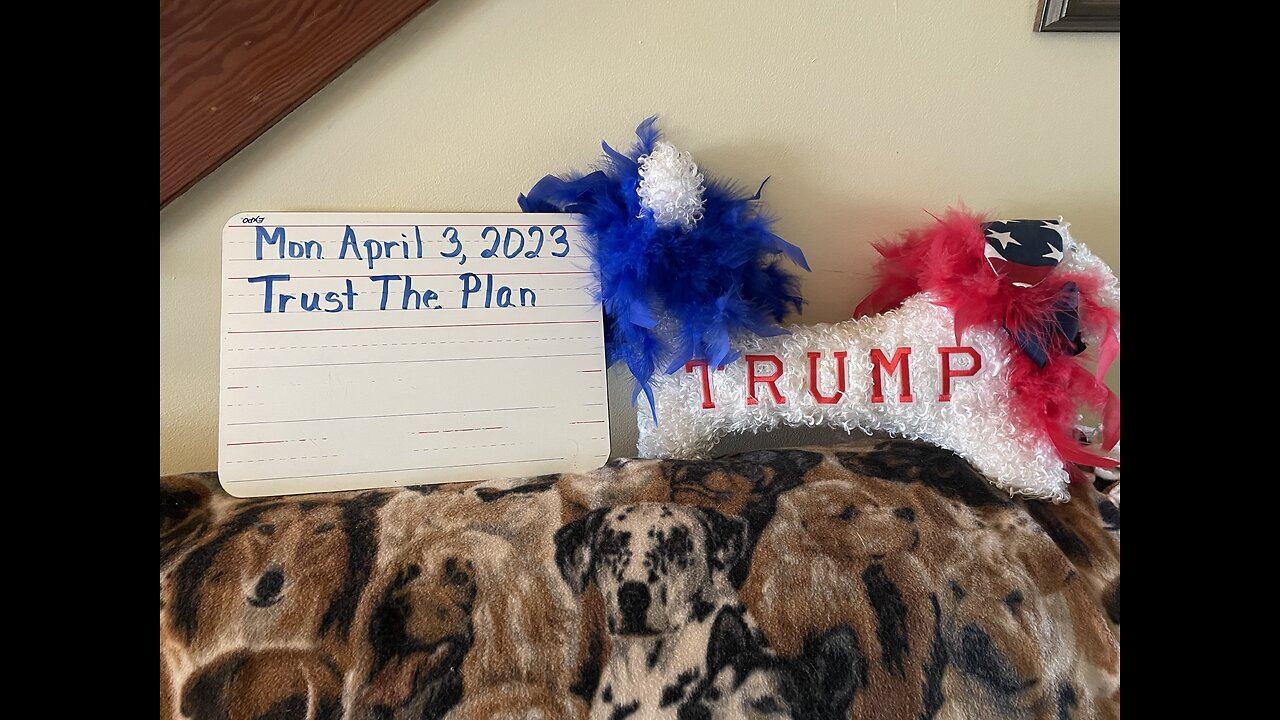 EXPO
Mon April 3, 2023
Trust The Plan
TRUMP